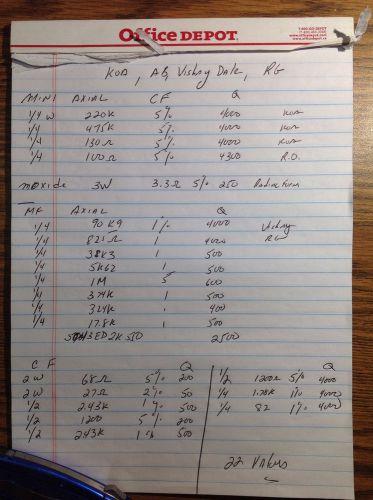 1·800·GO·DEPOT
www.officedepot.com
Office DEPOT
KOA, AB, Vishay Dale, RG
MINI AXIAL CF Q
1/4 W 220K 5% 4000 KOA
1/4 475K 5% 4000 KOA
1/4 130Ω 5% 4000 KOA
1/4 100Ω 5% 4300 R.O.
moxide 3W 3.3Ω 5% 250 Radial Form
MF AXIAL Q
1/4 90K9 1% 4000 Vishay
1/4 821Ω 1 4000 RG
1/4 38K3 1 500
1/4 5K62 1 500
1/4 1M 5 600
1/4 374K 1 500
1/4 324K 400
1/4 17.8K 500
2K 550 2500
CF Q
2W 68Ω 5% 200
2W 27Ω 2% 50
1/2 2.43K 1% 500
1/2 1200 5% 200
1/2 243K 1% 500
1/2 1200Ω 5% 4000
1/4 1.78K 1% 4000
1/4 82 1% 4000
22 Values